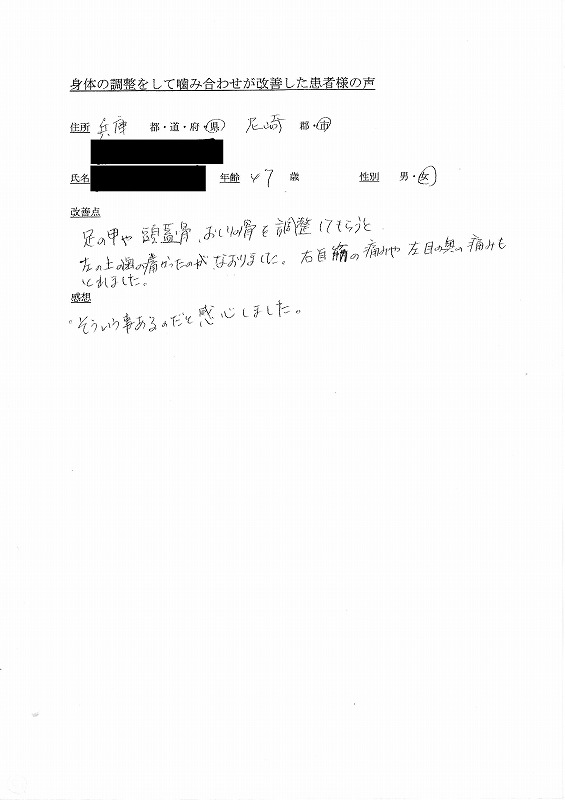 身体の調整をして噛み合わせが改善した患者様の声
住所 兵庫 都・道・府・県 尼崎 郡・市
氏名 年齢 47 歳 性別 男・女
改善点
足の甲や 頭蓋骨、おしりの骨を調整してもらうと
左の上の歯の痛かったのがなおりました。 右首筋の痛みや左目の奥の痛みも
とれました。
感想
そういう事あるのだと感心しました。